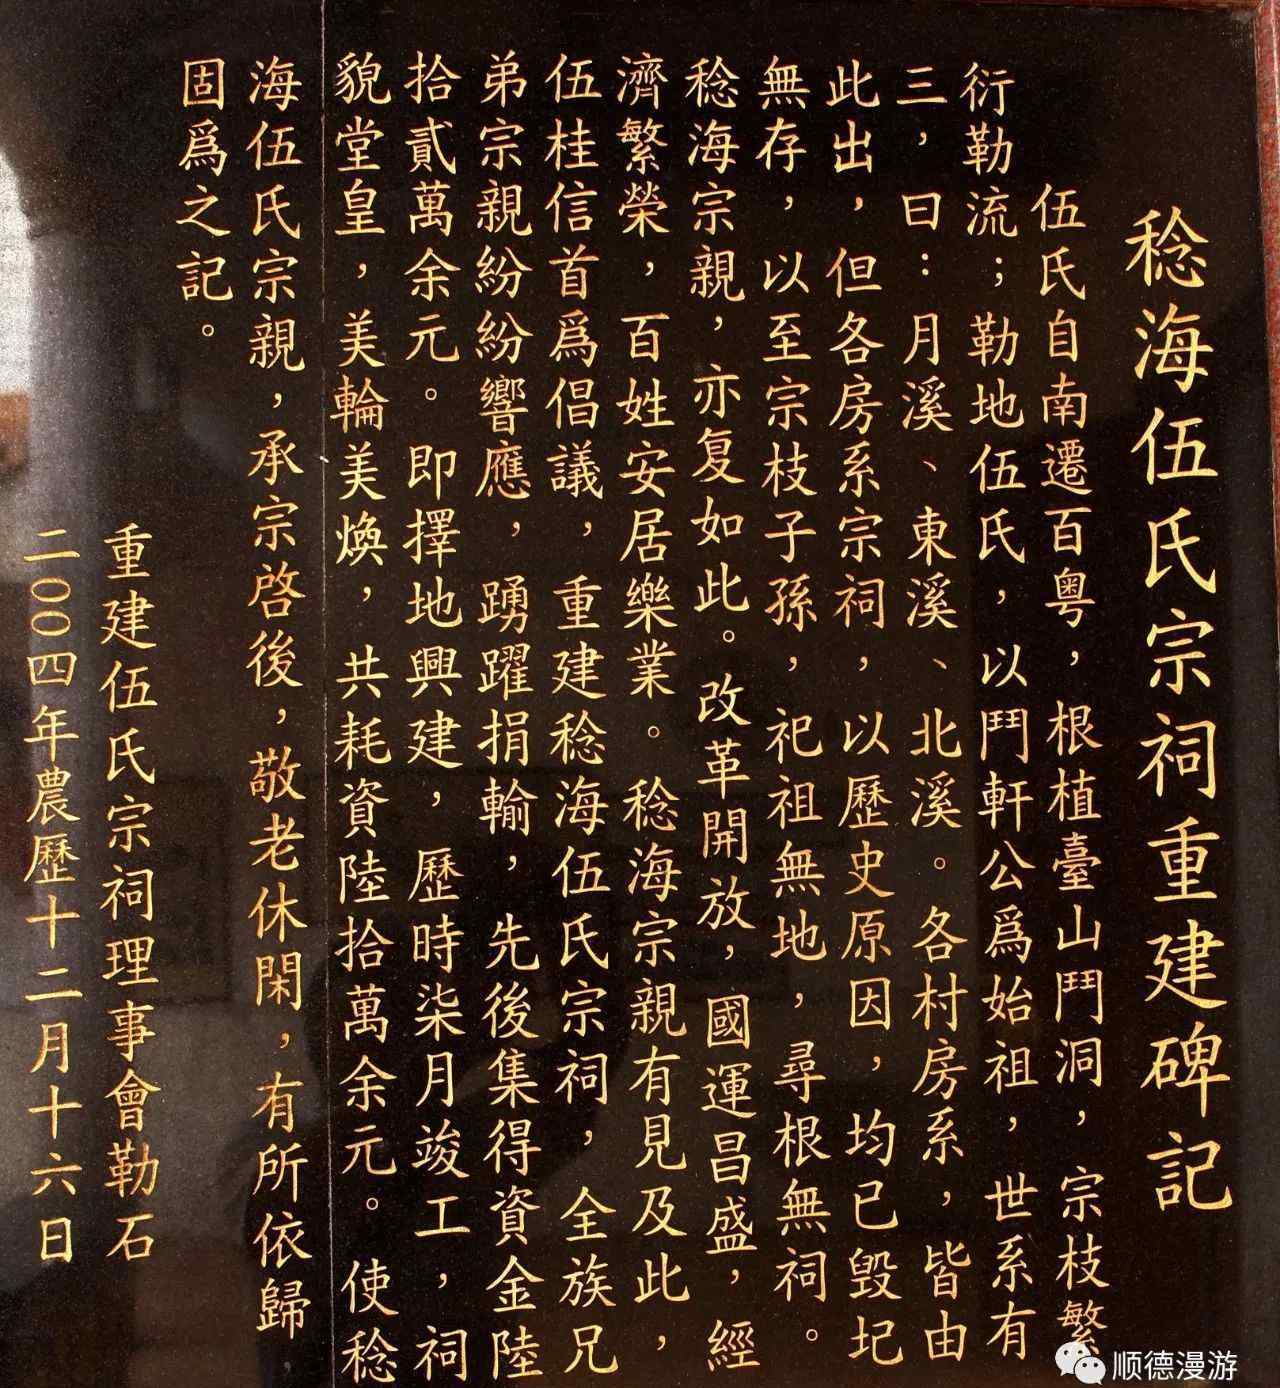 稔海伍氏宗祠重建碑記
伍氏自南遷百粤，根植臺山鬥洞，宗枝繁
衍勒流；勒地伍氏，以鬥軒公爲始祖，世系有
三，曰：月溪、東溪、北溪。各村房系，皆由
此出，但各房系宗祠，以歷史原因，均已毀圮
無存，以至宗枝子孫，祀祖無地，尋根無祠。
稔海宗親，亦复如此。改革開放，國運昌盛，經
濟繁榮，百姓安居樂業。稔海宗親有見及此，
伍桂信首爲倡議，重建稔海伍氏宗祠，全族兄
弟宗親紛紛響應，踴躍捐輸，先後集得資金陸
拾貳萬余元。即擇地興建，歷時柒月竣工，祠
貌堂皇，美輪美煥，共耗資陸拾萬余元。使稔
海伍氏宗親，承宗啓後，敬老休閑，有所依歸，
固爲之記。
重建伍氏宗祠理事會勒石
二〇〇四年農歷十二月十六日
顺德漫游